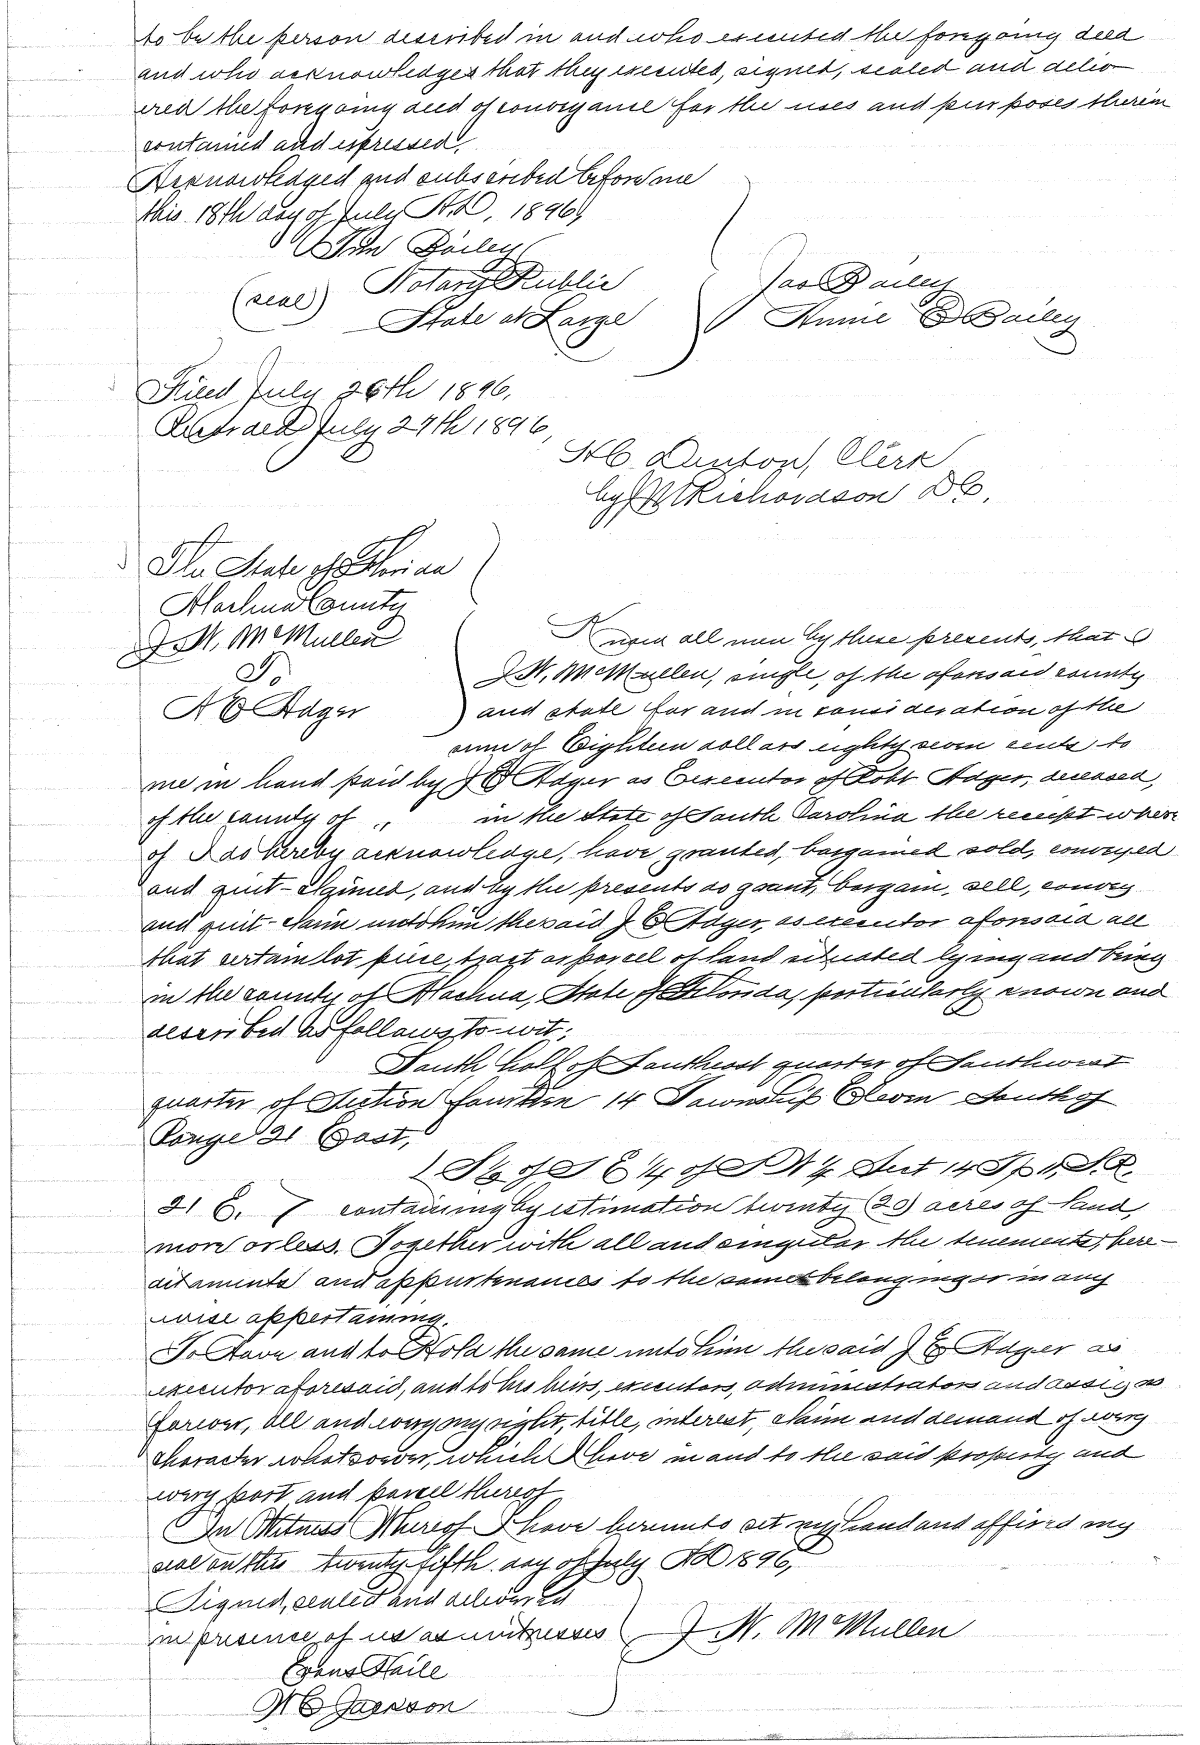 to be the person described in and who executed the foregoing deed
and who acknowledges that they executed, signed, sealed and deliv-
ered the foregoing deed of conveyance for the uses and purposes therein
contained and expressed.
Acknowledged and subscribed before me
this 18th day of July A.D. 1896,
Bailey
Notary Public
(seal) State at Large
Jas Bailey
Annie E Bailey
Filed July 26th 1896.
Recorded July 27th 1896,
Denton, Clerk
by Richardson DC.
The State of Florida
Alachua County
J. N. McMullen
To
Adger
Know all men by these presents, that I
J N. McMullen, single, of the aforesaid county
and state for and in consideration of the
sum of Eighteen dollars eighty seven cents to
me in hand paid by J E Adger as Executor of Robt Adger, deceased,
of the county of " in the State of South Carolina the receipt where
of I do hereby acknowledge, have granted, bargained sold, conveyed
and quit-claimed, and by the presents do grant, bargain, sell, convey
and quit-claim unto him the said J E Adger, as executor aforesaid all
that certain lot piece, tract or parcel of land situated lying and being
in the county of Alachua, State of Florida, particularly known and
described as follows, to-wit:
South half of Southeast quarter of Southwest
quarter of Section fourteen 14 Township Eleven South of
Range 21 East,
(S½ of S E ¼ of S W ¼ Sect 14 Tp 11, S. R.
21 E. ) containing by estimation twenty (20) acres of land,
more or less. Together with all and singular the tenements, here-
ditaments and appurtenances to the same belonging or in any
wise appertaining.
To Have and to Hold the same unto him the said J E Adger as
executor aforesaid, and to his heirs, executors, administrators and assigns
forever, all and every my right, title, interest, claim and demand of every
character whatsoever, which I have in and to the said property and
every part and parcel thereof
In Witness Whereof I have hereunto set my hand and affixed my
seal on this twenty-fifth day of July AD 1896,
Signed, sealed and delivered
in presence of us as witnesses
J. N. McMullen
Evans Haile
Jackson